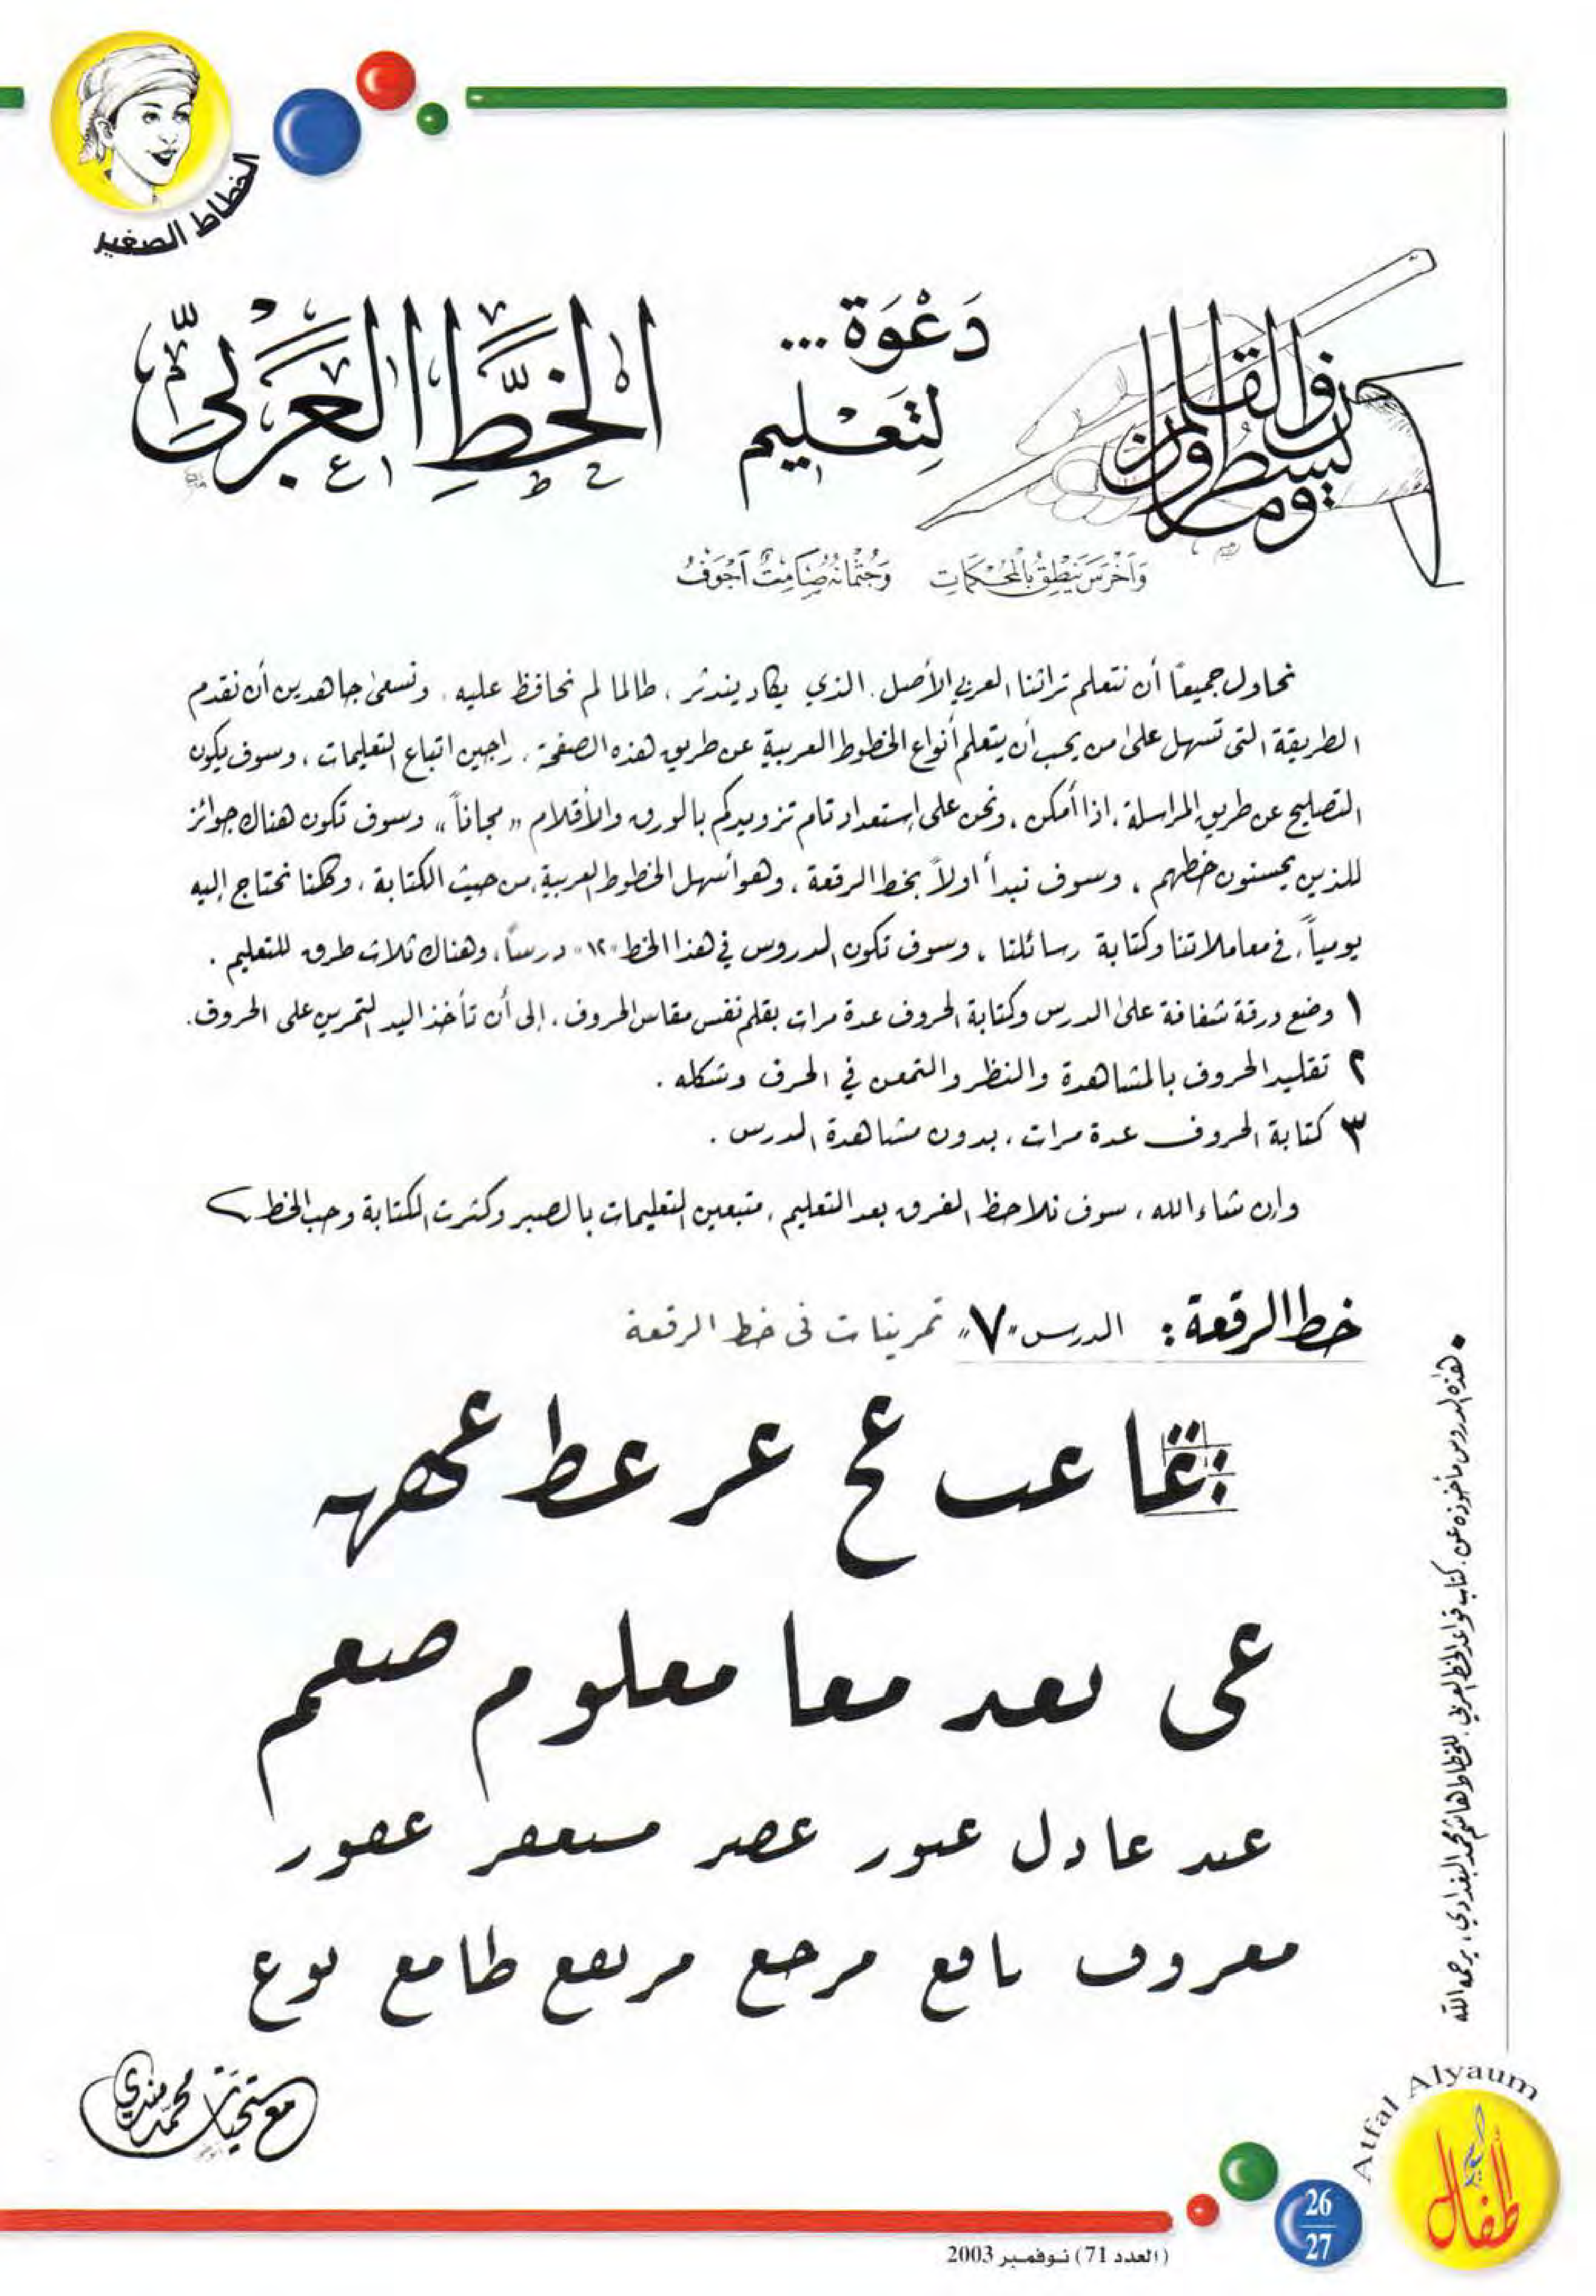 الخطاط الصغير
ن والقلم وما يسطرون
دَعْوَة...
لِتَعْليم
الخَطِّ العَرَبيّ
وَأَخْرَسَ يَنْطِقُ بِالْمُحْكَمَاتِ وَجُثْمَانُهُ صَامِتٌ أَجْوَفُ
نحاول جميعاً أن نتعلم تراثنا العربي الأصيل. الذي يكاد يندثر ، طالما لم نحافظ عليه ، ونسعى جاهدين أن نقدم
الطريقة التي تسهل على من يحب أن يتعلم أنواع الخطوط العربية عن طريق هذه الصفحة ، راجين اتباع التعليمات ، وسوف يكون
التصليح عن طريق المراسلة ، إذا أمكن ، ونحن على إستعداد تام تزويدكم بالورق والأقلام "مجاناً" وسوف تكون هناك جوائز
للذين يحسنون خطهم ، وسوف نبدأ أولاً بخط الرقعة ، وهو أسهل الخطوط العربية، من حيث الكتابة ، وكلنا نحتاج إليه
يومياً، في معاملاتنا وكتابة رسائلنا ، وسوف تكون الدروس في هذا الخط "١٢" درساً، وهناك ثلاث طرق للتعليم .
١ وضع ورقة شفافة على الدرس وكتابة الحروف عدة مرات بقلم نفس مقاس الحروف ، إلى أن تأخذ اليد التمرين على الحروف.
٢ تقليد الحروف بالمشاهدة والنظر والتمعن في الحرف وشكله .
٣ كتابة الحروف عدة مرات ، بدون مشاهدة الدرس .
وإن شاء الله ، سوف نلاحظ الفرق بعد التعليم ، متبعين التعليمات بالصبر وكثرت الكتابة وحب الخط
خط الرقعة: الدرس "٧" تمرينات في خط الرقعة
عا عب عح عر عط عمهه
عى بعد معا معلوم صعم
عبد عادل عبور عصر مسعفر عفور
معروف نافع مرجع مربفع طامع نوع
• هذه الدروس مأخوذه عن ، كتاب قواعد الخط العربي ، للخطاط هاشم محمد البغدادي ، يرحمه الله
مع تحيات محمد مندي
Atfal Alyaum
أطفال اليوم
26
27
(العدد 71) نوفمبر 2003